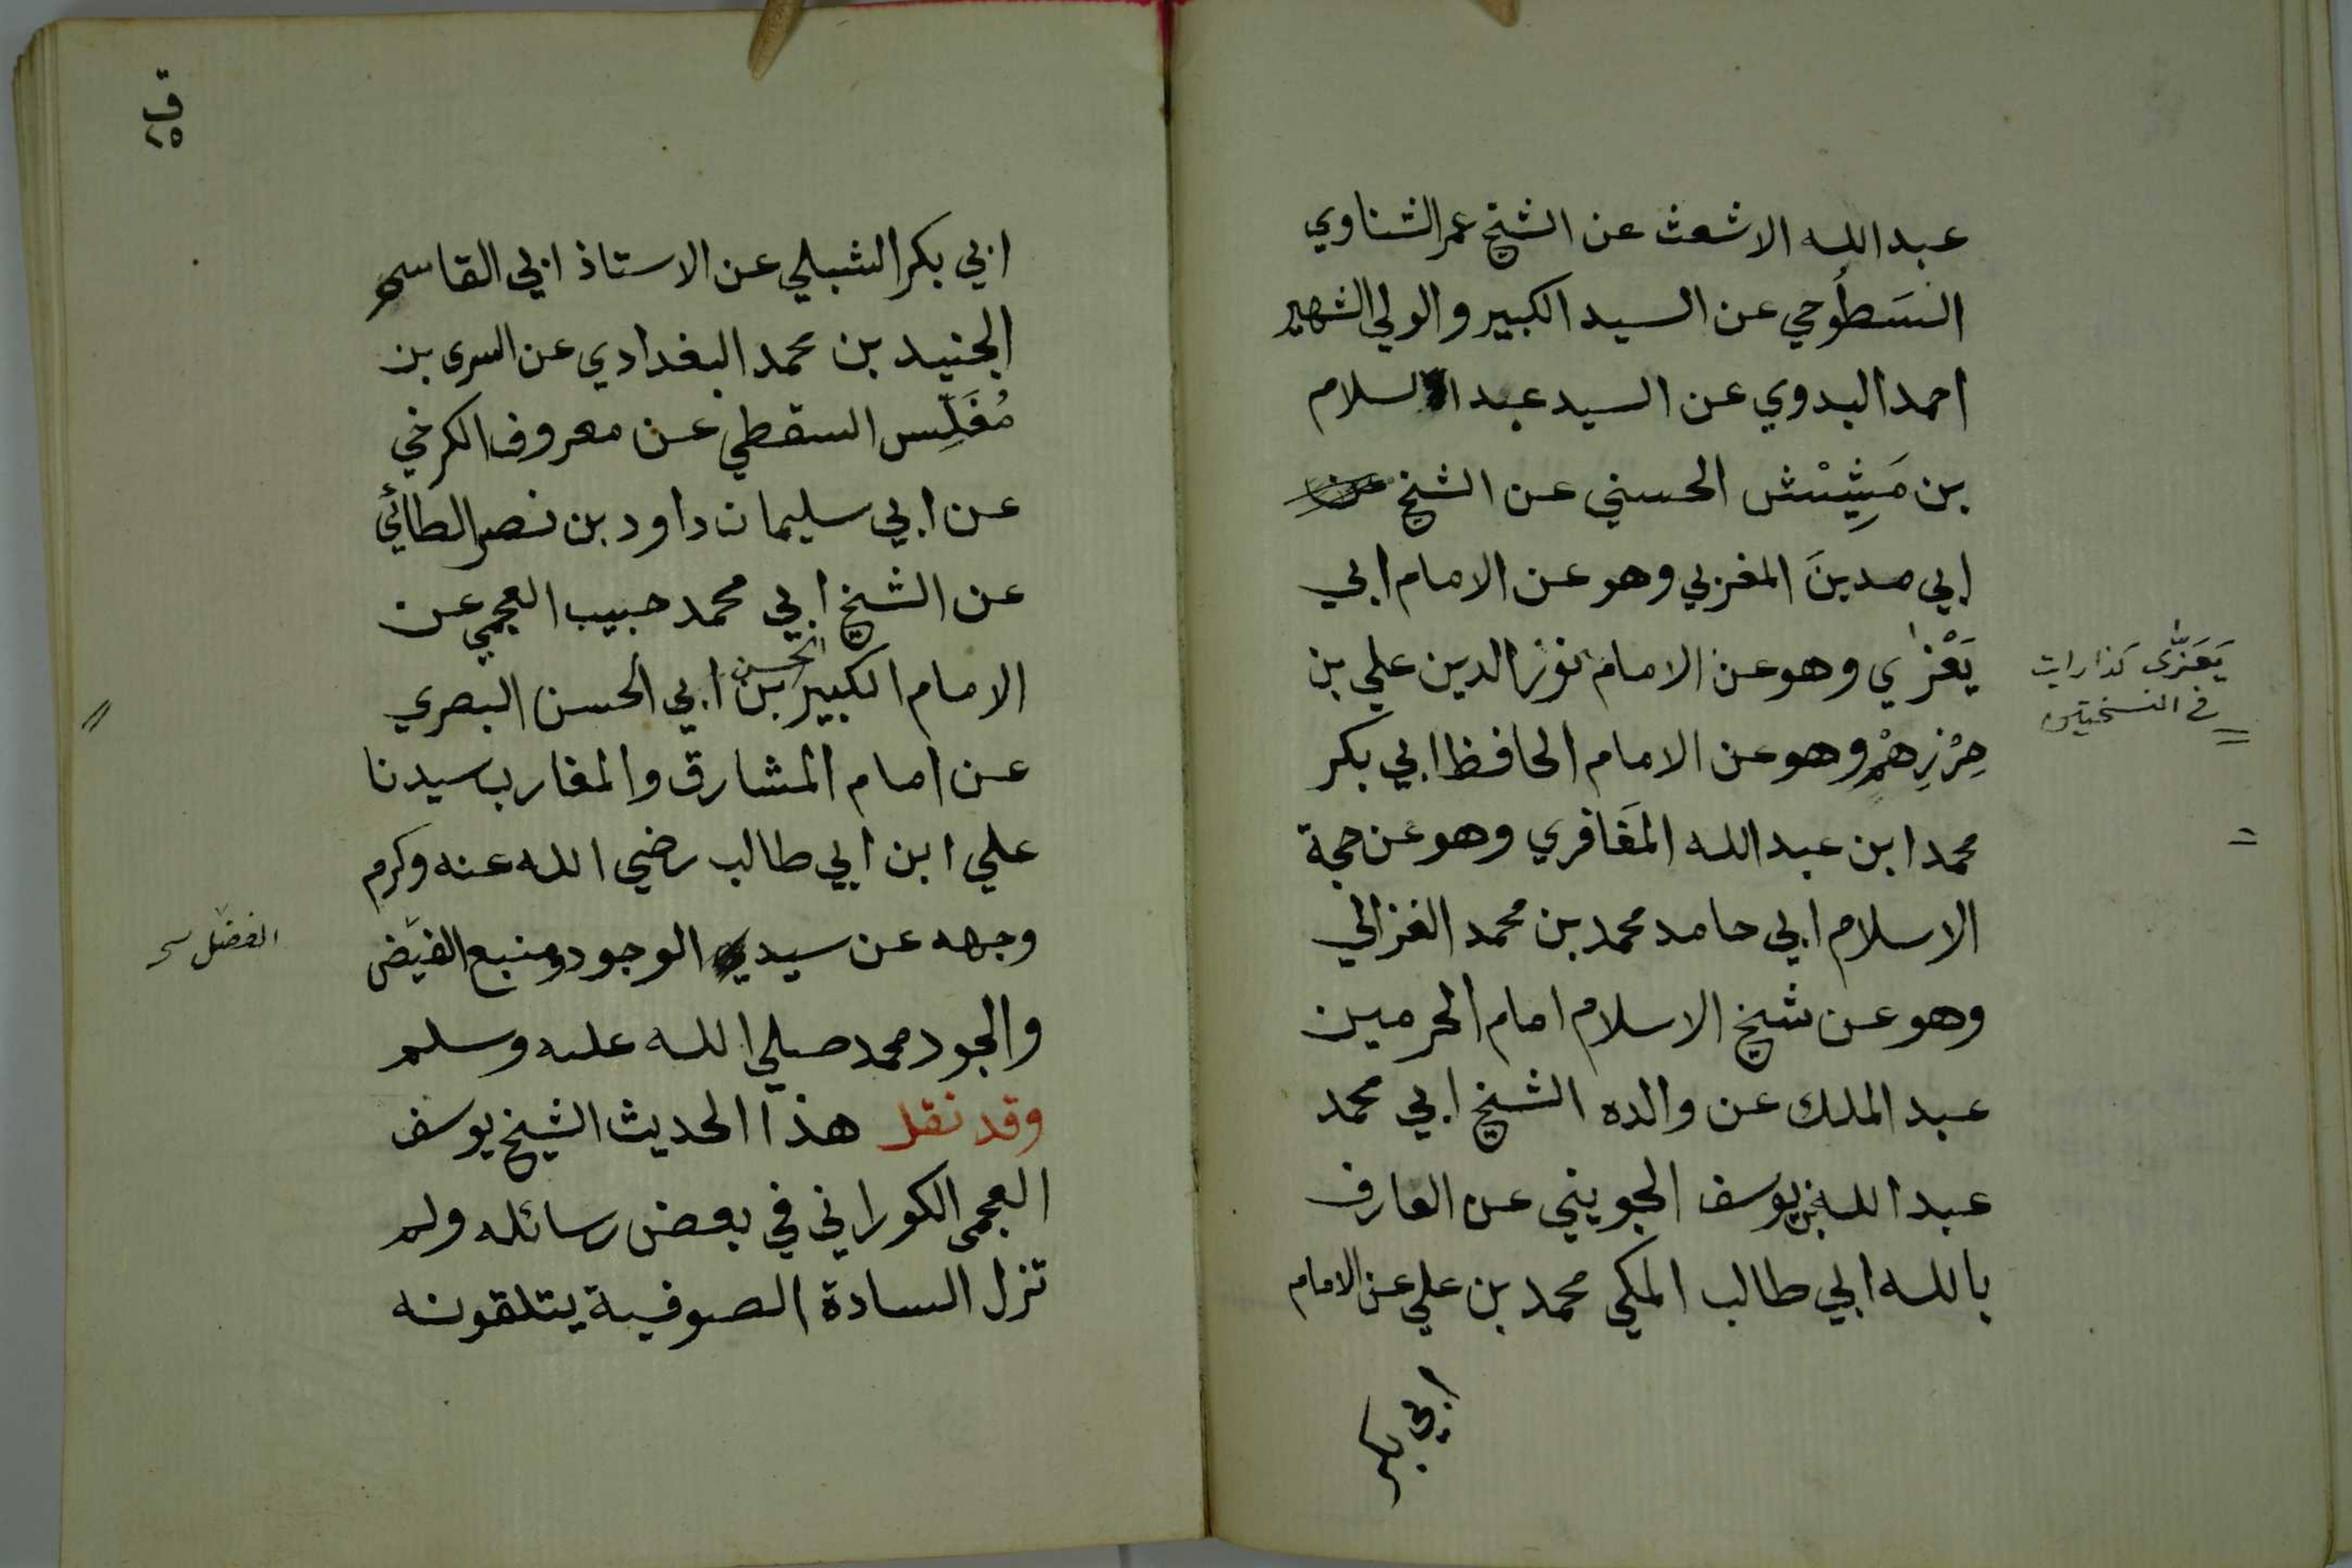 عبد الله الاشعث عن الشيخ عمر الشناوي
السَطُوحي عن السيد الكبير والولي الشهير
احمد البدوي عن السيد عبد السلام
بن مَشِيْش الحسني عن الشيخ عن
ابي مدينَ المغربي وهو عن الامام ابي
يَعْزٰي وهو عن الامام نور الدين علي بن
حِرْزِهِمْ وهو عن الامام الحافظ ابي بكر
محمد ابن عبد الله المَغَافري وهو عن حجة
الاسلام ابي حامد محمد بن محمد الغزالي
وهو عن شيخ الاسلام امام الحرمين
عبد الملك عن والده الشيخ ابي محمد
عبد الله بن يوسف الجويني عن العارف
بالله ابي طالب المكي محمد بن علي عن الامام
ابي بكر
يَعَزّٰى كذا رايت
في النسختين
ابي بكر الشبلي عن الاستاذ ابي القاسم
الجنيد بن محمد البغدادي عن السرى بن
مُغَلِّس السقطي عن معروف الكرخي
عن ابي سليمان داود بن نصر الطائي
عن الشيخ ابي محمد حبيب العجمي عن
الامام الكبير الحسن بن ابي الحسن البصري
عن امام المشارق والمغارب سيدنا
علي ابن ابي طالب رضي الله عنه وكرم
وجهه عن سيد الوجود ومنبع الفيَض
والجود محمد صلي الله عليه وسلم
وقد نقل هذا الحديث الشيخ يوسف
العجمى الكوراني في بعض رسائله ولم
تزل السادة الصوفية يتلقونه
الفضل